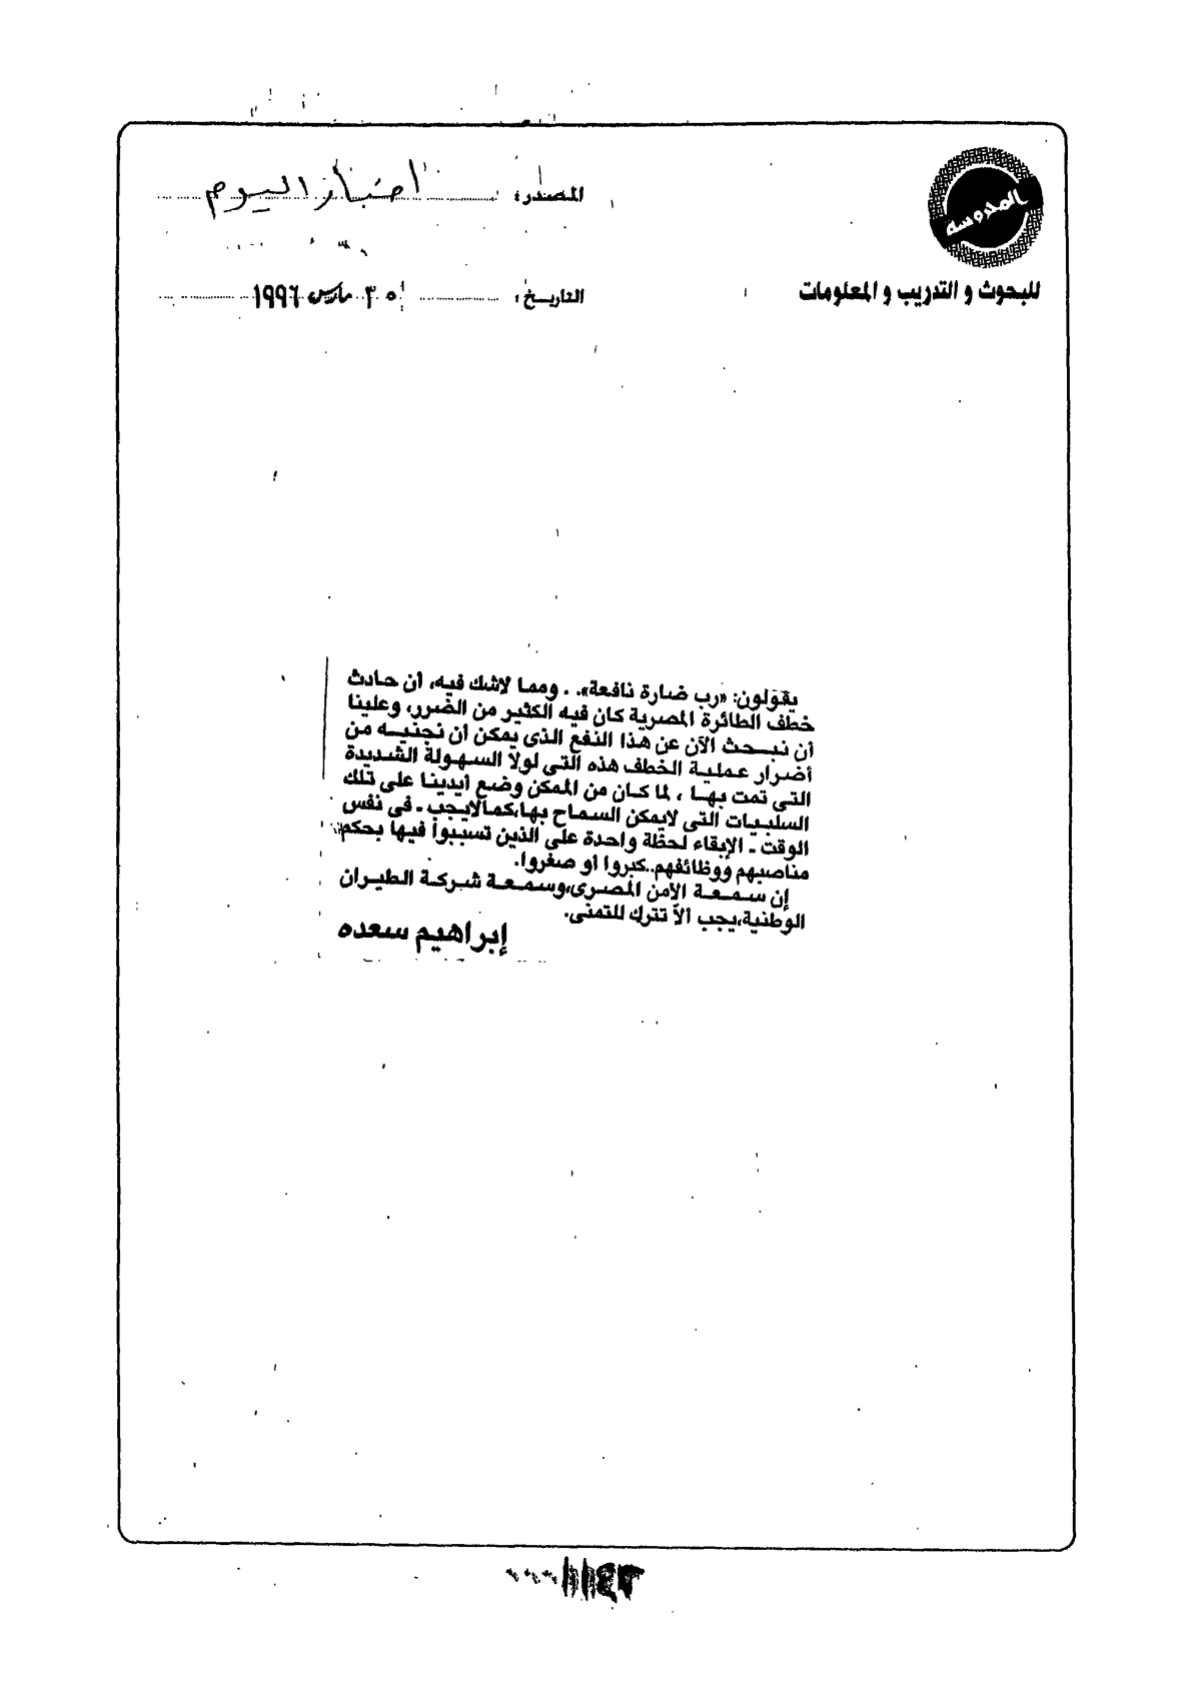 المحروسة
المصدر: اخبار اليوم
للبحوث و التدريب و المعلومات
التاريخ: ٣٠ مارس ١٩٩٦
يقولون: «رب ضارة نافعة». . ومما لاشك فيه، أن حادث
خطف الطائرة المصرية كان فيه الكثير من الضرر، وعلينا
أن نبحث الآن عن هذا النفع الذى يمكن أن نجنيه من
أضرار عملية الخطف هذه التى لولا السهولة الشديدة
التى تمت بها ، لما كان من الممكن وضع أيدينا على تلك
السلبيات التى لايمكن السماح بها،كمالايجب - فى نفس
الوقت - الإبقاء لحظة واحدة على الذين تسببوا فيها بحكم
مناصبهم ووظائفهم..كبروا أو صغروا.
إن سمعة الأمن المصرى،وسمعة شركة الطيران
الوطنية،يجب ألاّ تترك للتمنى.
إبراهيم سعده